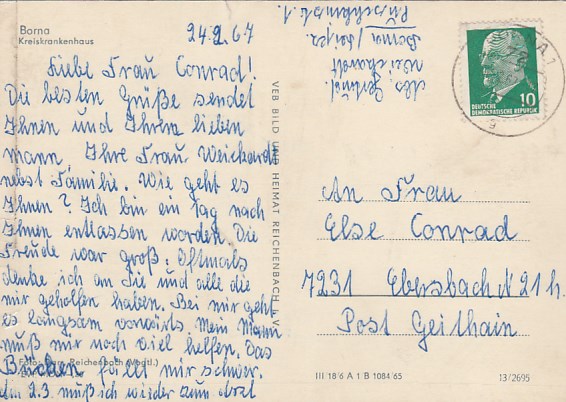 Borna
Kreiskrankenhaus
24.2.67
Liebe Frau Conrad!
Die besten Grüße sendet
Ihnen und Ihrem lieben
mann, Ihre Frau Weichardt
nebst Familie. Wie geht es
Ihnen? Ich bin ein Tag nach
Ihnen entlassen worden. Die
Freude war groß. Oftmals
denke ich an Sie und alle die
mir geholfen haben. Bei mir geht
es langsam vorwärts. Mein Mann
muß mir noch viel helfen. Das
Bücken fällt mir schwer.
Am 2.3. muß ich wieder zum Arzt
Reichenbach (Vogtl.)
VEB BILD UND HEIMAT REICHENBACH I. V.
Abs. Gertrud
Weichardt
Borna / Leipz.
DEUTSCHE
DEMOKRATISCHE REPUBLIK
10
An Frau
Else Conrad
7231 Ebersbach N 21 h.
Post Geithain
III 18 6 A 1 B 1084 65
13/2695